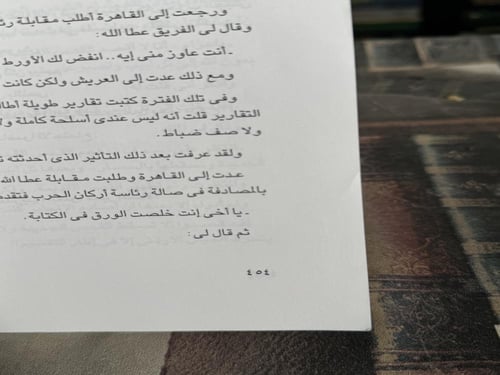 ورجعت إلى القاهرة أطلب مقابلة
وقال لى الفريق عطا الله:
ـ أنت عاوز منى إيه.. انفض لك الأورط
ومع ذلك عدت إلى العريش ولكن كانت
وفى تلك الفترة كتبت تقارير طويلة
التقارير قلت أنه ليس عندى أسلحة كاملة
ولا صف ضباط.
ولقد عرفت بعد ذلك التأثير الذى أحدثته
عدت إلى القاهرة وطلبت مقابلة عطا الله
بالمصادفة فى صالة رئاسة أركان الحرب
ـ يا أخى إنت خلصت الورق فى الكتابة.
ثم قال لى:
٤٥٤